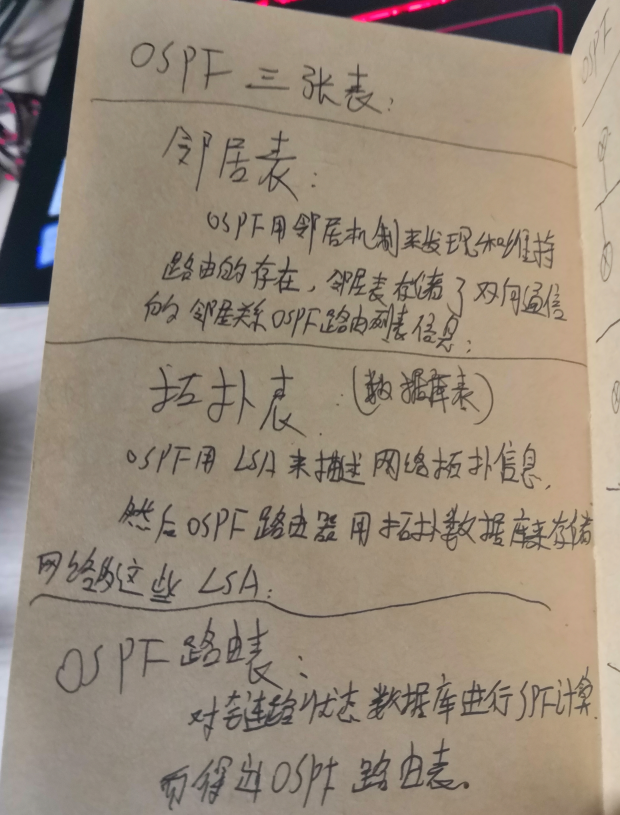 OSPF 三张表:
邻居表:
OSPF用邻居机制来发现和维持
路由的存在,邻居表存储了双向通信
的邻居关系OSPF路由列表信息;
拓扑表 (数据库表)
OSPF用 LSA 来描述网络拓扑信息,
然后OSPF路由器用拓扑数据库来存储
网络的这些 LSA;
OSPF路由表:
对链路状态数据库进行SPF计算
而得出OSPF 路由表。
OSPF